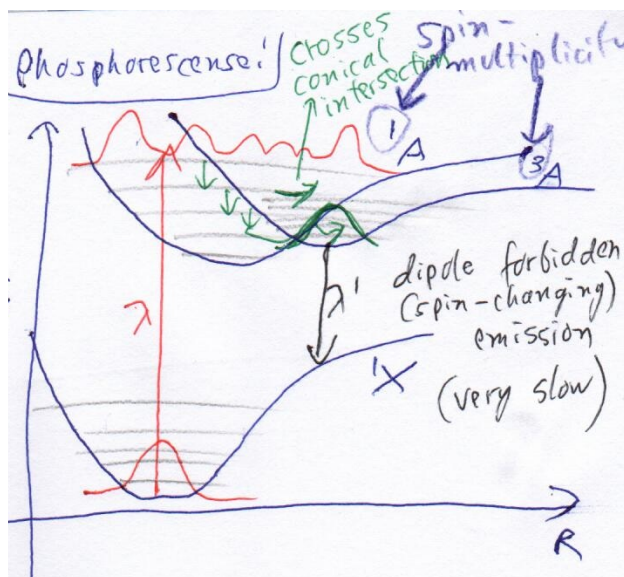 Phosphorescense!
Crosses
conical
intersection
spin-
multiplicity
1
A
3
A
λ
λ'
dipole forbidden
(spin-changing)
emission
(very slow)
'X
R